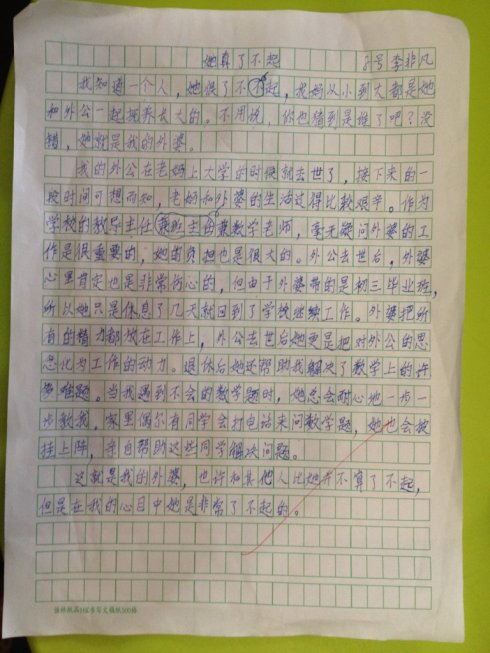 她真了不起 8号李非凡
我知道一个人，她很了不起，我妈从小到大都是她
和外公一起抚养长大的。不用说，你也猜到是谁了吧？没
错，她就是我的外婆。
我的外公在老妈上大学的时候就去世了，接下来的一
段时间可想而知，老妈和外婆的生活过得比较艰辛。作为
学校的教导主任兼班主任兼数学老师，毫无疑问外婆的工
作是很重要的，她的负担也是很大的。外公去世后，外婆
心里肯定也是非常伤心的，但由于外婆带的是初三毕业班，
所以她只是休息了几天就回到了学校继续工作。外婆把所
有的精力都放在工作上，外公去世后她更是把对外公的思
念化为工作的动力。退休后她还帮助我解决了数学上的许
多难题。当我遇到不会的数学题时，她总会耐心地一步一
步教我。家里偶尔有同学会打电话来问数学题，她也会披
挂上阵，亲自帮助这些同学解决问题。
这就是我的外婆，也许和其他人比她并不算了不起，
但是在我的心目中她是非常了不起的。